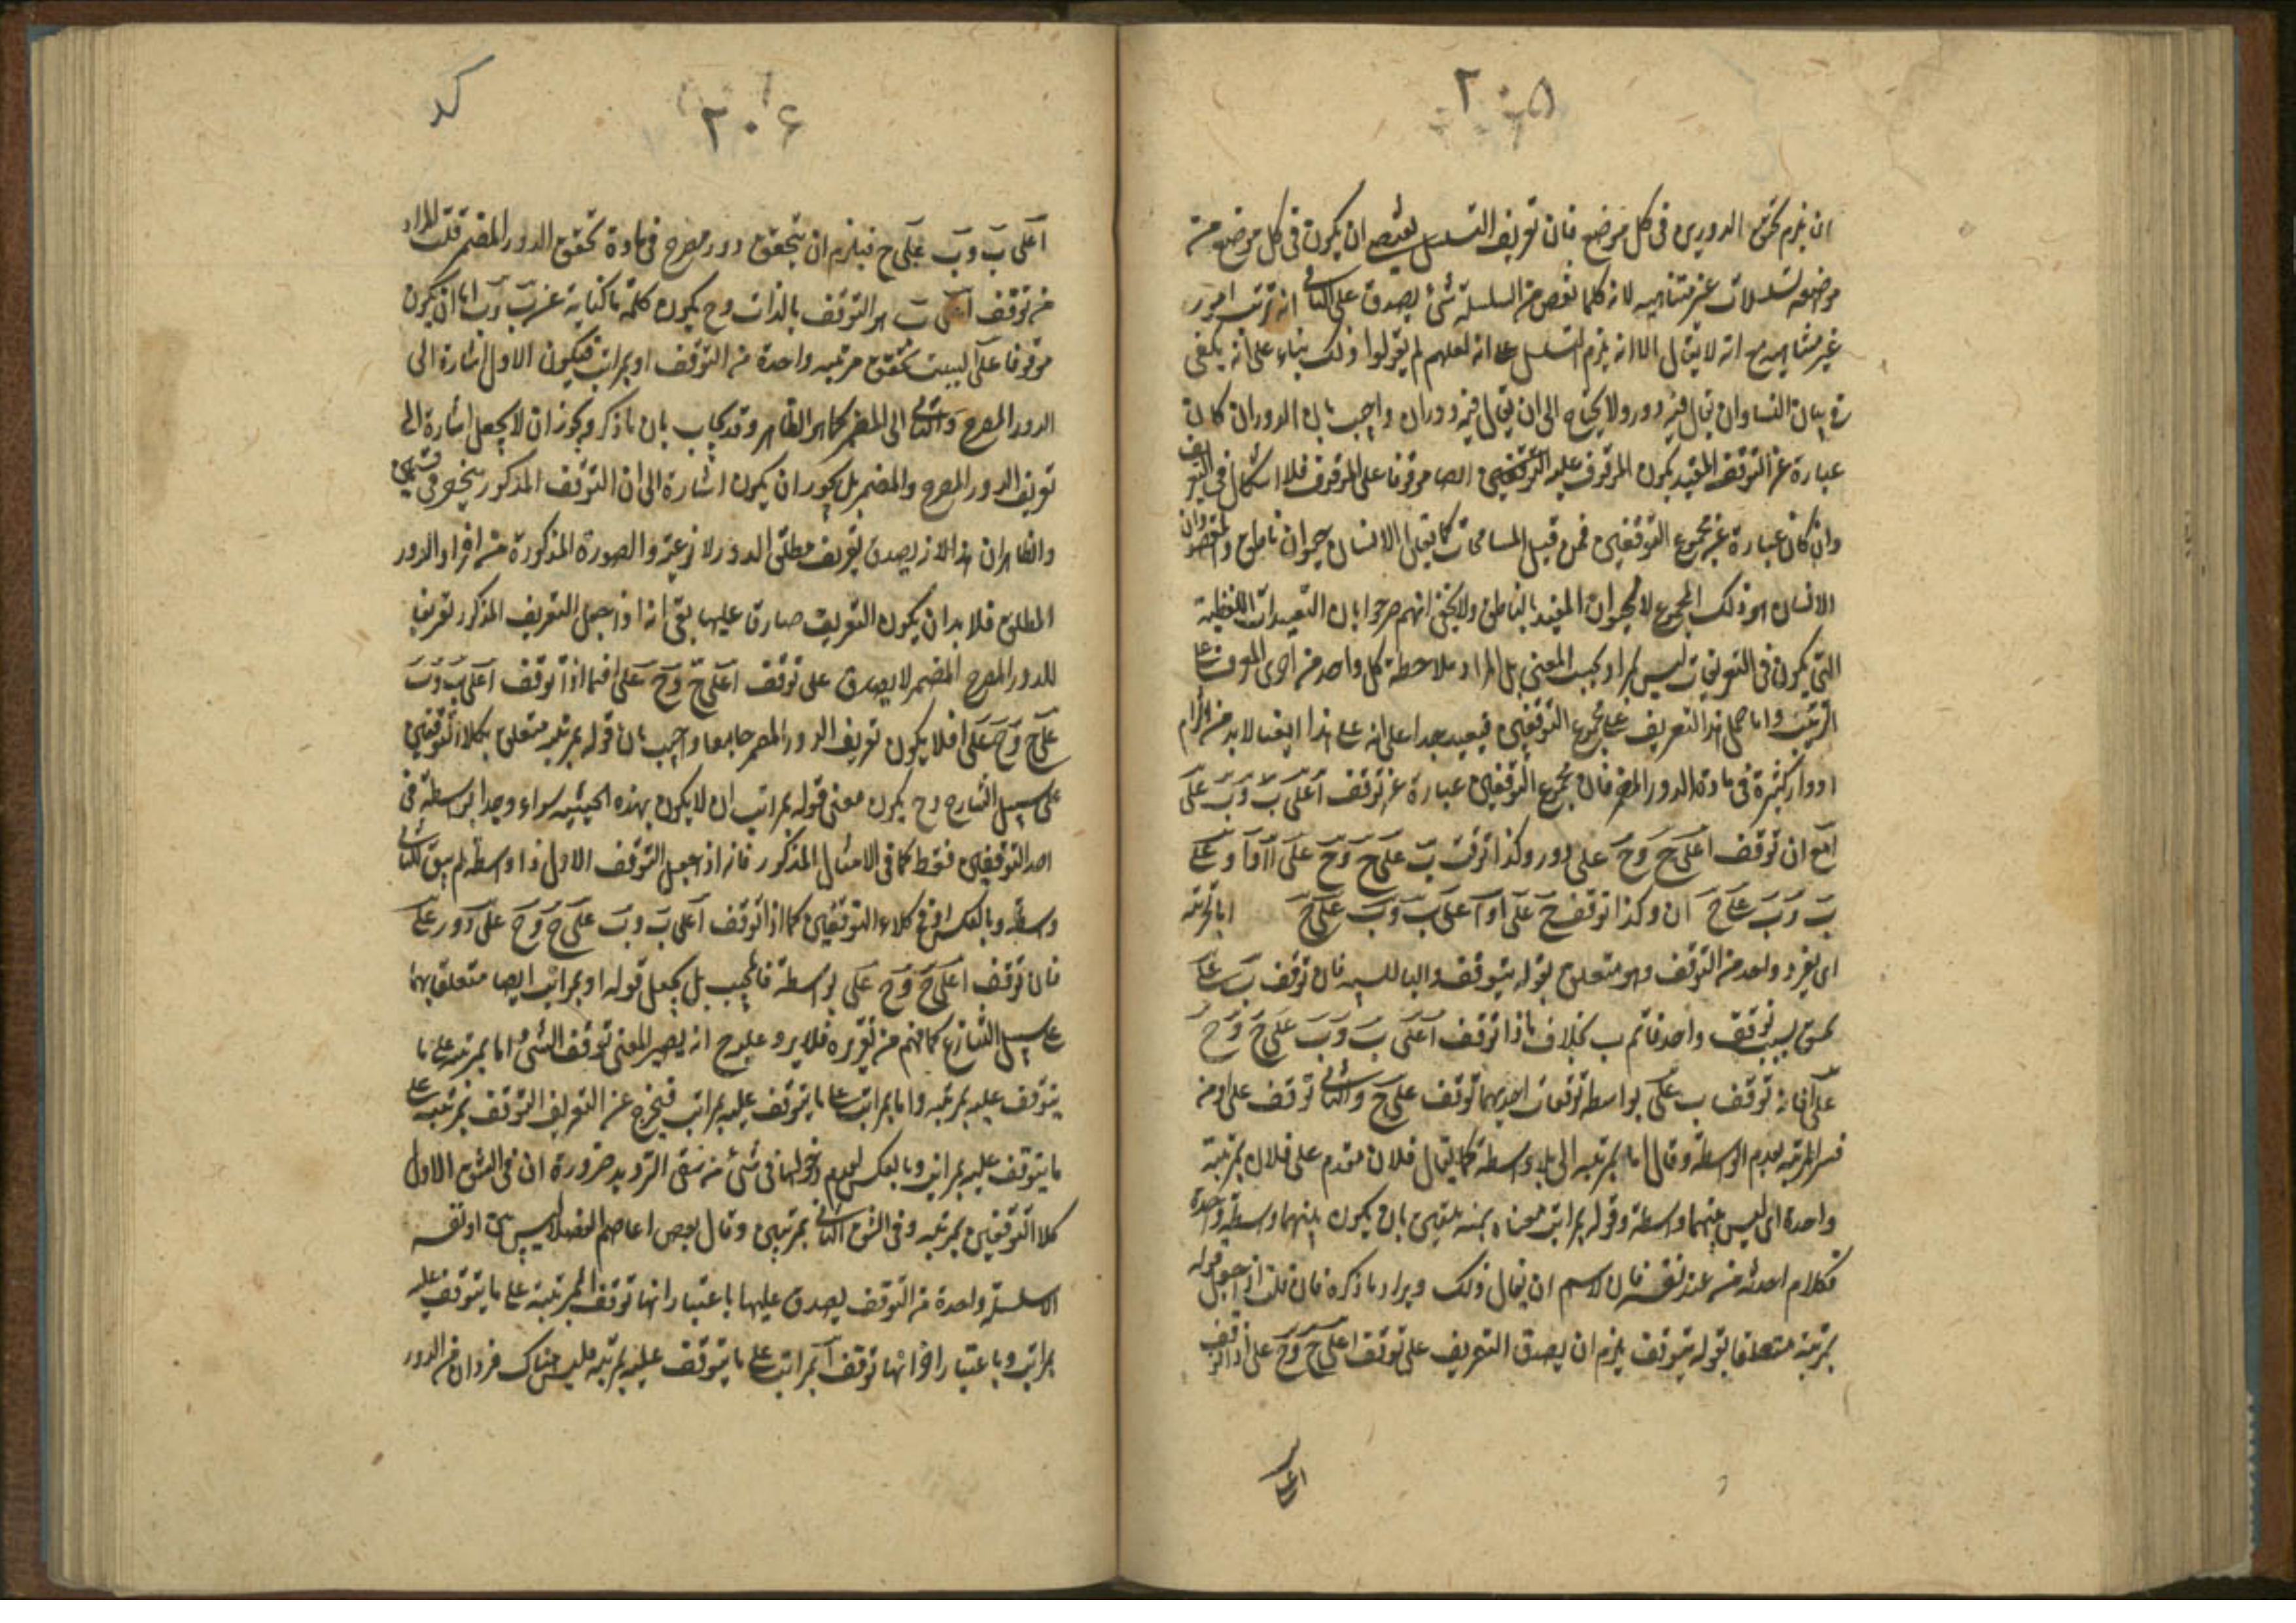 ۲۰۵
ان يلزم تحقق الدورين فى كل موضع فان تعريف التسلسل يقتضى ان يكون فى كل موضع منه
تسلسلات غير متناهيه لانه كلما نقص من السلسلة شئ يصدق على الباقى انه ترتب امور
غير متناهيه مع انه لا يقال الا انه يلزم التسلسل على انه لعلهم لم يقولوا ذلك بناء على انه يكفى
فى بيان الفساد ان يقال فيه دور ولا يحتاج الى ان يقال فيه دوران واجيب بان الدور ان كان
عبارة عن التوقف المقيد بكون الموقوف عليه ايضا موقوفا على الموقوف فلا اشكال فى التعريف
وان كان عبارة عن مجموع التوقفين فمن قبيل المسامحات كما يقال الانسان حيوان ناطق
الانسان هو ذلك المجموع لا الحيوان المقيد بالناطق ولا يخفى انهم صرحوا بان التقييدات اللفظية
التى يكون فى التعريفات ليس مراد بحسب المعنى بل المراد ملاحظة كل واحد من اجزاء المعرف على
الترتيب واما حمل هذا التعريف على مجموع التوقفين فبعيد جدا على انه على هذا ايضا لا بد من التزام
ادوار كثيرة فى مادة الدور المضمر فان مجموع التوقفين عبارة عن توقف ا على ب و ب على
ا مع ان توقف ا على ج و ج على ا دور وكذا توقف ب على ج و ج على ا و ا على
ب و ب على ج وكذا توقف ج على ا و ا على ب و ب على ج
اى بفرد واحد من التوقف وهو متعلق بقوله يتوقف والباء للسببيه فان توقف ب على
بسبب توقف واحد قائم ب بخلاف ما اذا توقف ا على ب و ب على ج و ج
على ا فانه توقف ب على ا بواسطة توقفات احديهما توقف على ج والثانى توقف على ا ومن
فسر المرتبه بعدم الواسطة وقال اما بمرتبه اى بلا واسطة كما يقال فلان مقدم على فلان بمرتبة
واحدة اى ليس بينهما واسطة وقوله بمراتب معناه بمرتبتين بان يكون بينهما واسطة واحدة
فكلام احدثه من عند نفسه فان لا سم ان يقال ذلك ويراد ما ذكره فان قلت اذ جعل قوله
بمرتبة متعلقا بقوله يتوقف يلزم ان يصدق التعريف على توقف ا على ج و ج على ا اذا توقف
۲۰۶
ا على ب و ب على ج فيلزم ان يتحقق دور مصرح فى مادة تحقق الدور المضمر قلت المراد
من توقف ا على ب هو التوقف بالذات و ح يكون كلمة ما كناية عن ب و ب اما ان يكون
موقوفا على ا بسبب تحقق مرتبه واحدة من التوقف او بمراتب فيكون الاول اشارة الى
الدور المصرح والثانى الى المضمر كما هو الظاهر وقد يجاب بان ما ذكر ويجوز ان لا يجعل اشارة الى
تعريف الدور المصرح والمضمر بل يجوز ان يكون اشارة الى ان التوقف المذكور ينحصر فى قسمين
والظاهر ان هذا لازم يصدق تعريف مطلق الدور والصورة المذكورة من افراد الدور
المطلق فلا بد ان يكون التعريف صادقا عليها بقى انه اذ جعل التعريف المذكور تعريف
للدور المصرح المضمر لا يصدق على توقف ا على ج و ج على ا فيما اذا توقف ا على ب و ب
على ج و ج على ا فلا يكون تعريف الدور المضمر جامعا واجيب بان قوله بمرتبه متعلق بكلا التوقفين
على سبيل التنازع و ح يكون معنى قوله بمراتب ان لا يكون بهذه الحيثيه سواء وجد الواسطة فى
احد التوقفين فقط كما فى الامثال المذكور فانه اذ جعل التوقف الاول ذا واسطة لم يبق للثانى
واسطة وبالعكس او فى كلا التوقفين كما اذا توقف ا على ب و ب على ج و ج على د و د على
فان توقف ا على ج و ج على بواسطة فالمجيب بل يجعل قوله او بمراتب ايضا متعلق بهما
على سبيل التنازع كما فهم من تقريره فلا يرد عليه ح انه يصير المعنى توقف الشئ اما بمرتبه على ما
يتوقف عليه بمرتبه واما بمراتب على ما يتوقف عليه بمراتب فيخرج عن التعريف التوقف بمرتبه على
ما يتوقف عليه بمراتب وبالعكس لعدم دخولهما فى شئ من شقى الترديد ضرورة ان فى الشق الاول
كلا التوقفين بمرتبه وفى الشق الثانى بمرتبتين وقال بعض
السلسلة واحدة من التوقف يصدق عليها باعتبار انها توقف بمرتبة على ما يتوقف عليه
بمراتب وباعتبار اخر انها توقف ا بمراتب على ما يتوقف عليه بمرتبه فليس هناك فردان من الدور